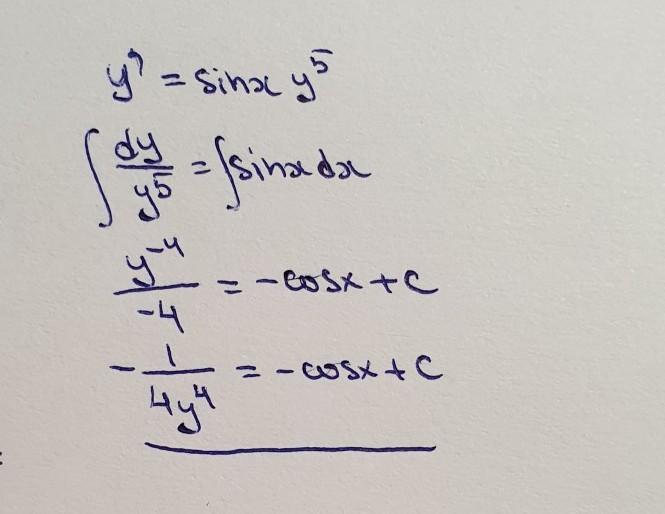 y' = sinx y⁵
∫ dy/y⁵ = ∫ sinx dx
y⁻⁴/-4 = -cosx + C
- 1/4y⁴ = -cosx + C